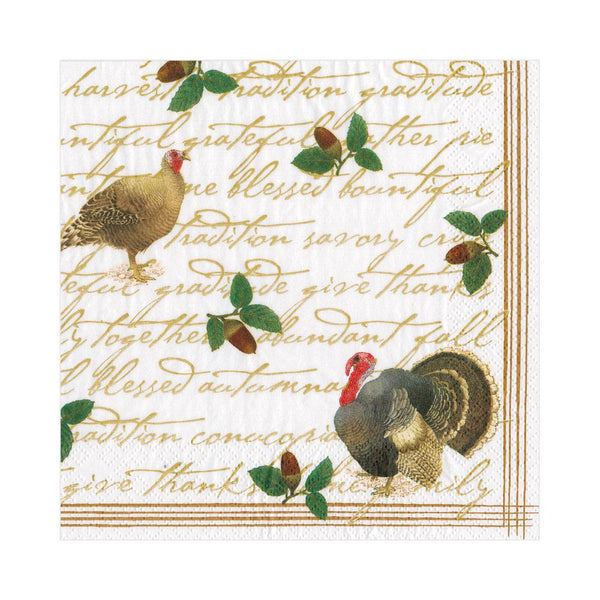 harvest tradition gratitude
ntiful grateful ther pie
me blessed bountiful
tradition savory cr
eful gratitude give thanks
ly together abundant fall
l blessed autumna
radition conucopia
give thanks me family